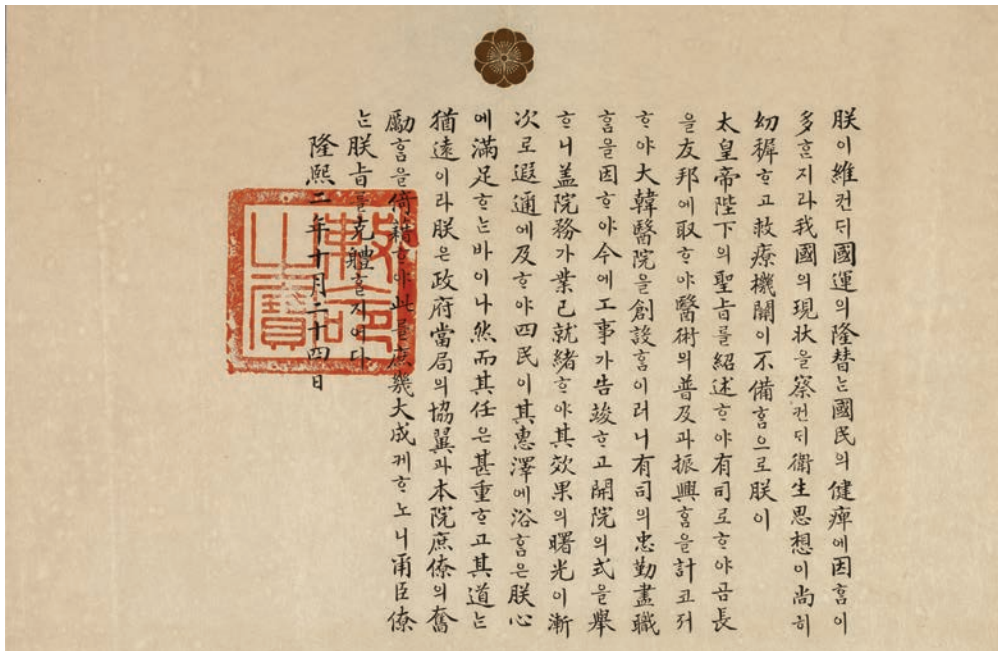 朕이維컨ᄃᆡ國運의隆替ᄂᆞᆫ國民의健痺에因ᄒᆞᆷ이
多ᄒᆞᆫ지라我國의現狀을察컨ᄃᆡ衛生思想이尙히
幼穉ᄒᆞ고救療機關이不備ᄒᆞᆷ으로朕이
太皇帝陛下의聖旨를紹述ᄒᆞ야有司로ᄒᆞ야곰長
을友邦에取ᄒᆞ야醫術의普及과振興ᄒᆞᆷ을計코져
ᄒᆞ야大韓醫院을創設ᄒᆞᆷ이러니有司의忠勤盡職
ᄒᆞᆷ을因ᄒᆞ야今에工事가告竣ᄒᆞ고開院의式을擧
ᄒᆞ니盖院務가業已就緖ᄒᆞ야其效果의曙光이漸
次로遐通에及ᄒᆞ야四民이其惠澤에浴ᄒᆞᆷ은朕心
에滿足ᄒᆞᄂᆞᆫ바이나然而其任은甚重ᄒᆞ고其道ᄂᆞᆫ
猶遠이라朕은政府當局의協翼과本院庶僚의奮
勵ᄒᆞᆷ을倚藉ᄒᆞ야此를庶幾大成케ᄒᆞ노니爾臣僚
ᄂᆞᆫ朕旨를克體ᄒᆞᆯ지어다
隆熙二年十月二十四日
勅命
之寶